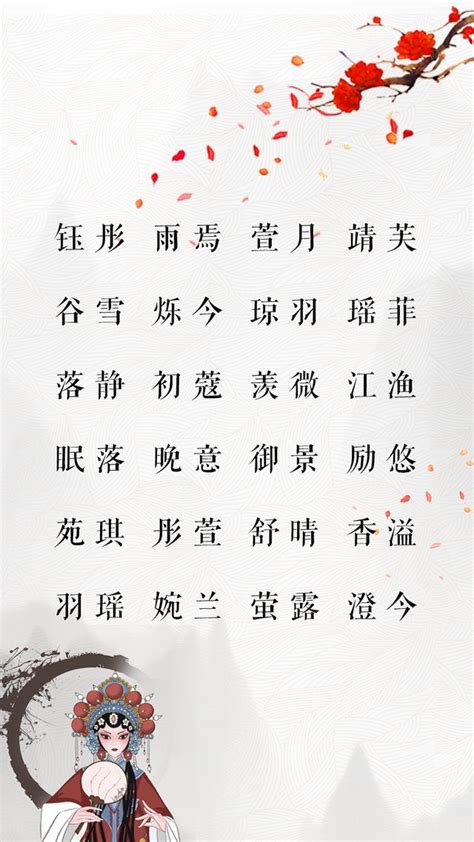 钰彤 雨焉 萱月 靖芙
谷雪 烁今 琼羽 瑶菲
落静 初蔻 羡微 江渔
眠落 晚意 御景 励悠
苑琪 彤萱 舒晴 香溢
羽瑶 婉兰 萤露 澄今